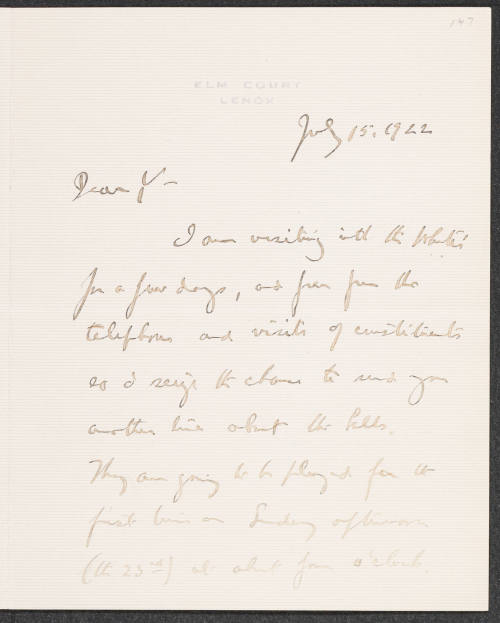 147
ELM COURT
LENOX
July 15, 1922
Dear
I am visiting with the White's
for a few days, and free from the
telephone and visits of constituents
so I seize the chance to send you
another line about the bells.
They are going to be played for the
first time on Sunday afternoon
(the 23rd) at about four o'clock.